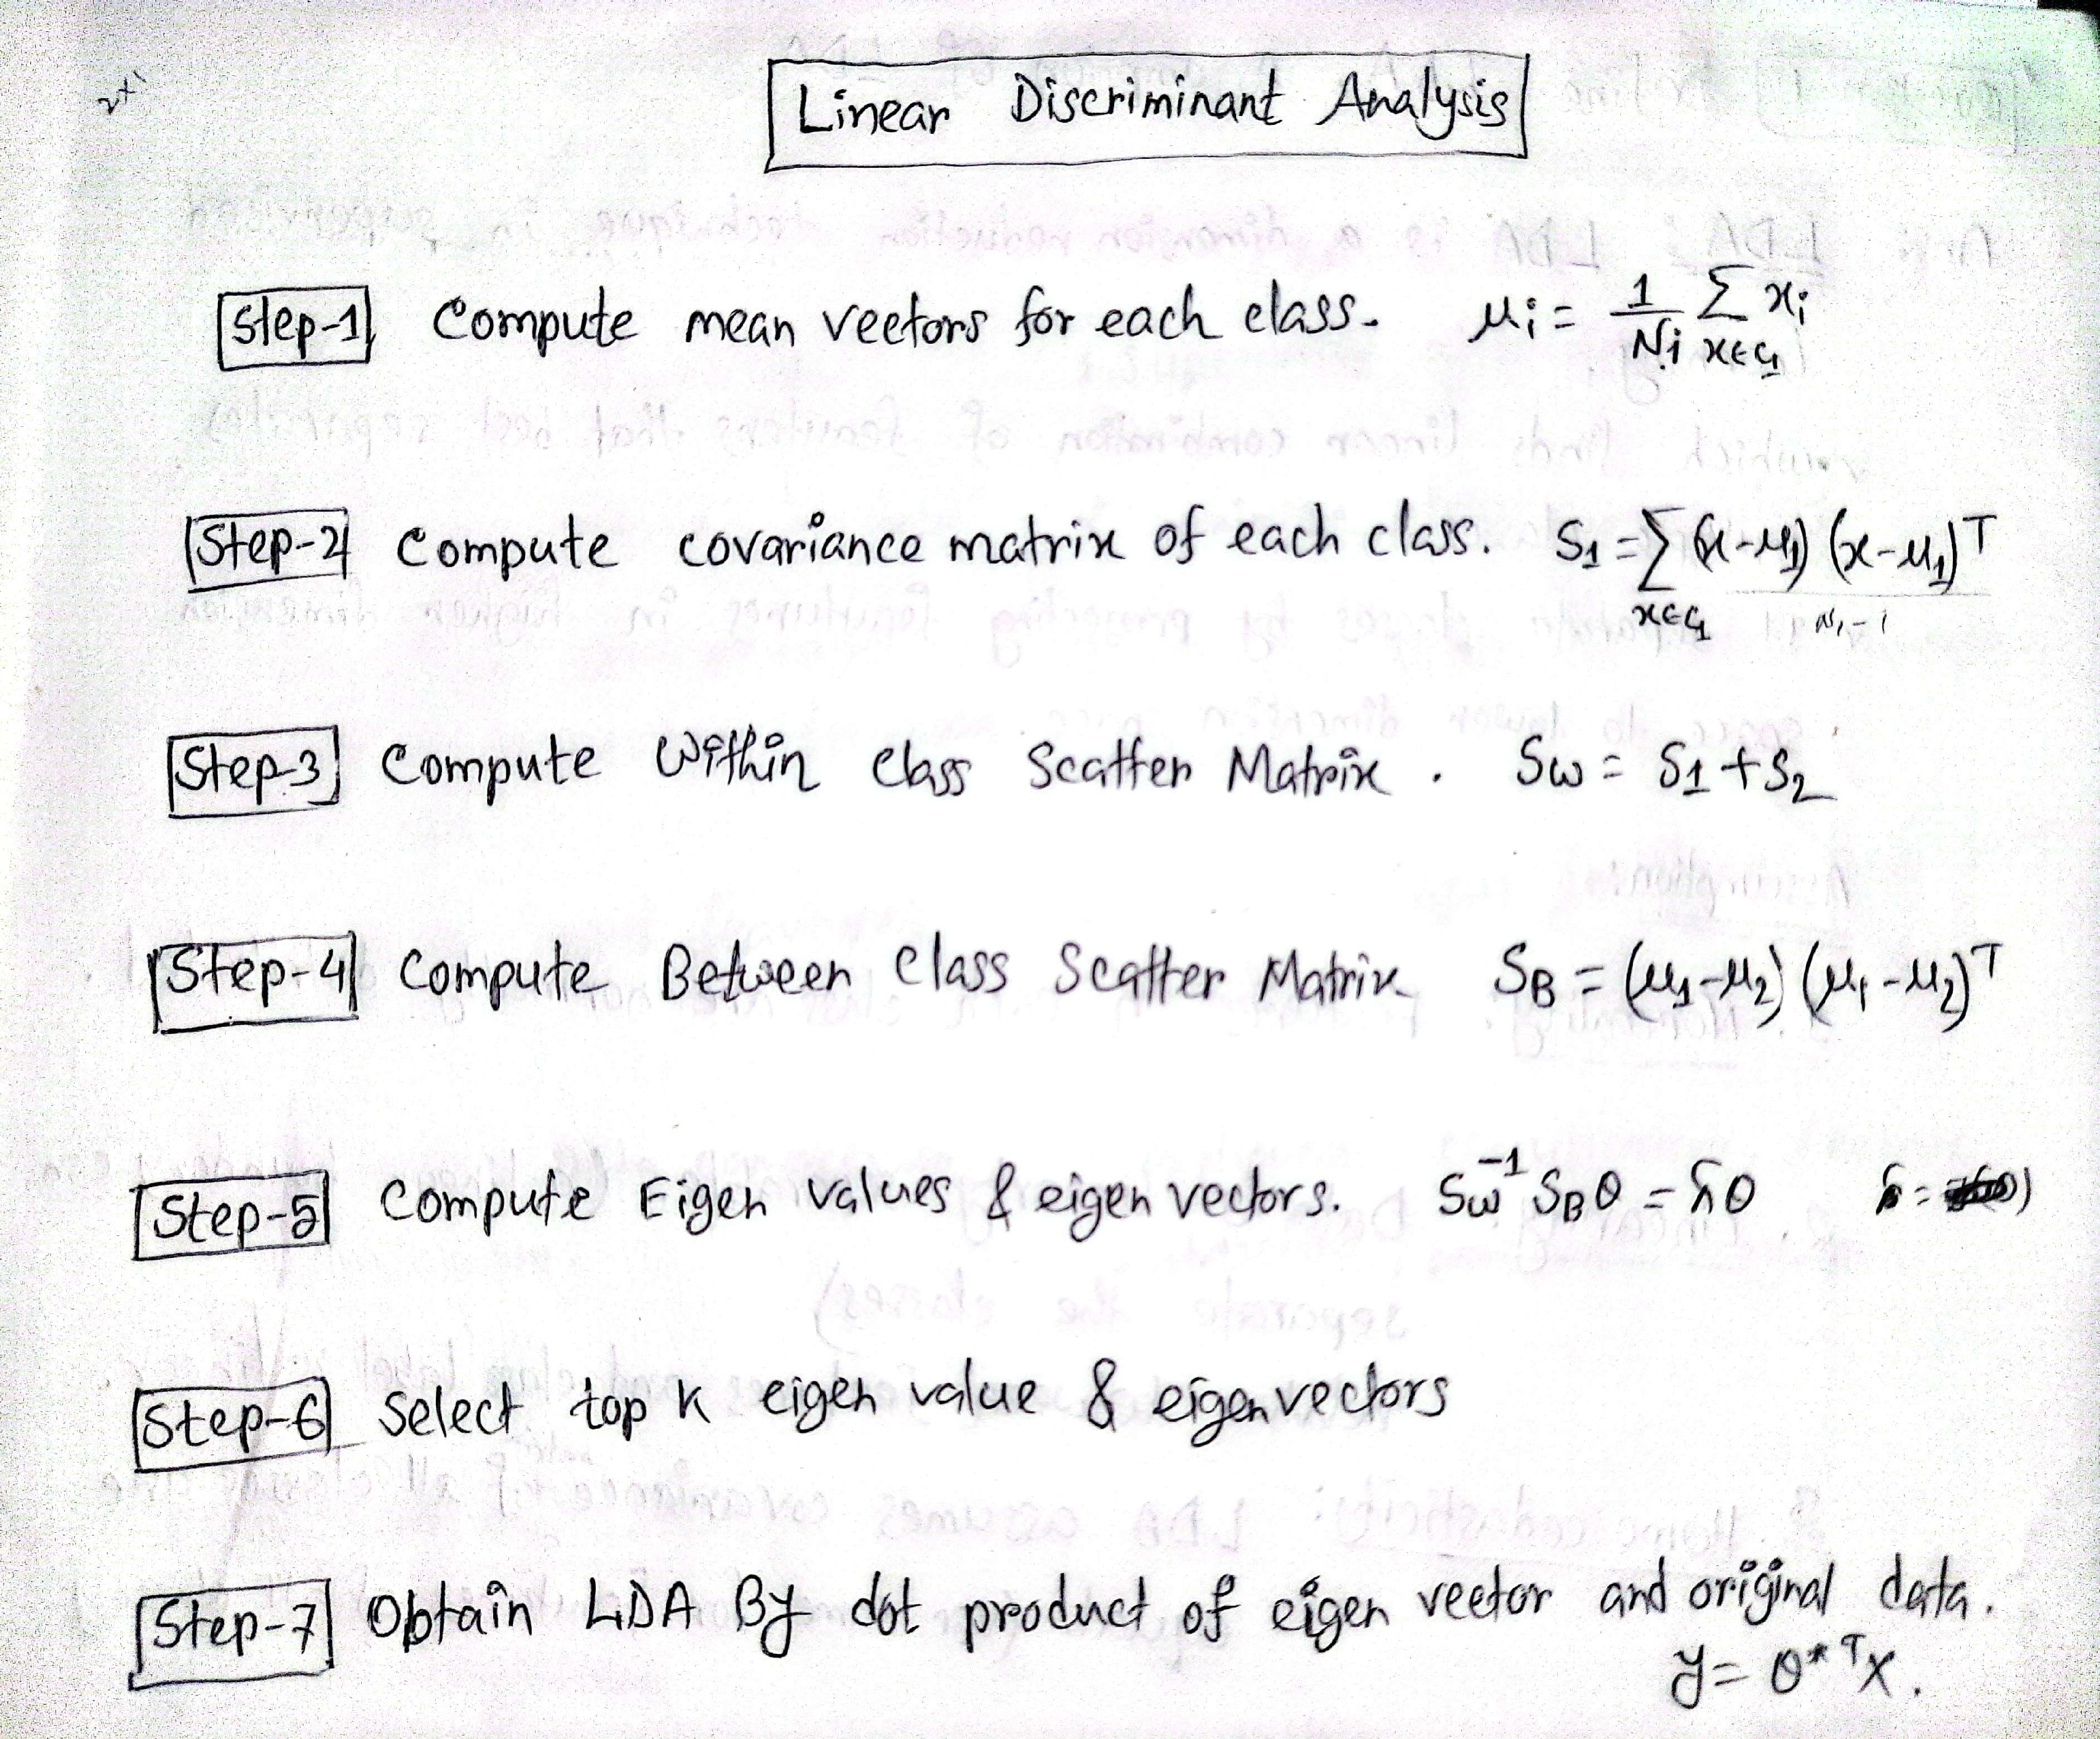 2x1
Linear Discriminant Analysis
Step-1 Compute mean vectors for each class. μi = 1/Ni Σ x∈C1 xi
Step-2 Compute covariance matrix of each class. S1 = Σ x∈C1 (x-μ1) (x-μ1)^T / N1-1
Step-3 Compute Within Class Scatter Matrix. Sw = S1 + S2
Step-4 Compute Between Class Scatter Matrix SB = (μ1-μ2) (μ1-μ2)^T
Step-5 Compute Eigen values & eigen vectors. Sw^-1 SBθ = λθ λ =
Step-6 Select top K eigen value & eigen vectors
Step-7 Obtain LDA By dot product of eigen vector and original data.
y = θ*^T X.